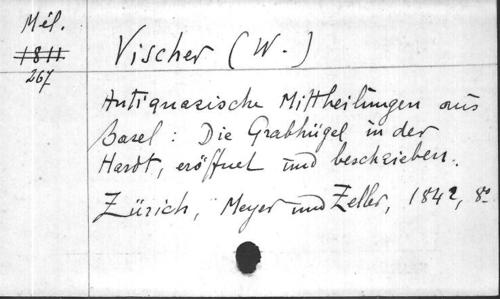 Mél.
1811
267
Vischer (W.)
Antiquarische Mittheilungen aus
Basel : Die Grabhügel in der
Hardt, eröffnet und beschrieben.
Zürich, Meyer und Zeller, 1842, 8°